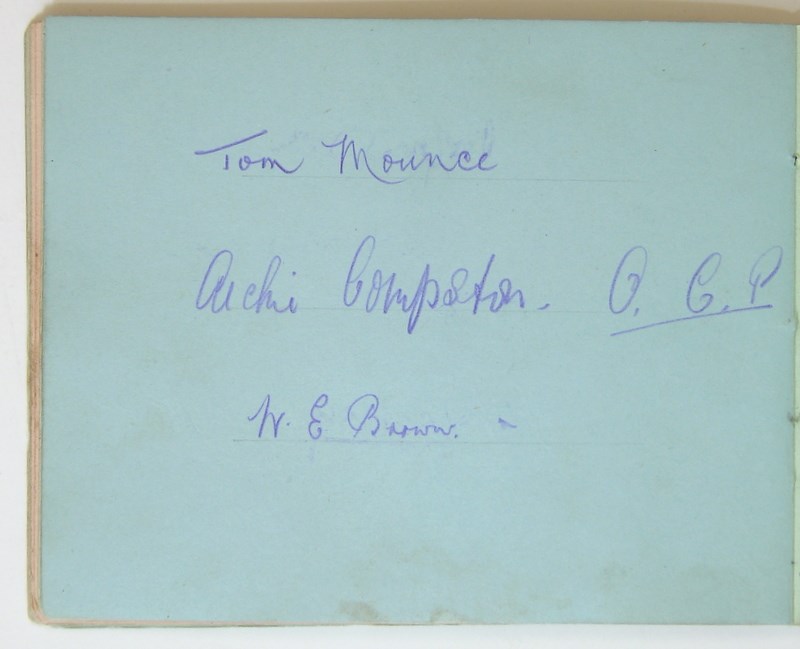 Tom Mounce
Archie Compston. O. C. P
W. E Brown.